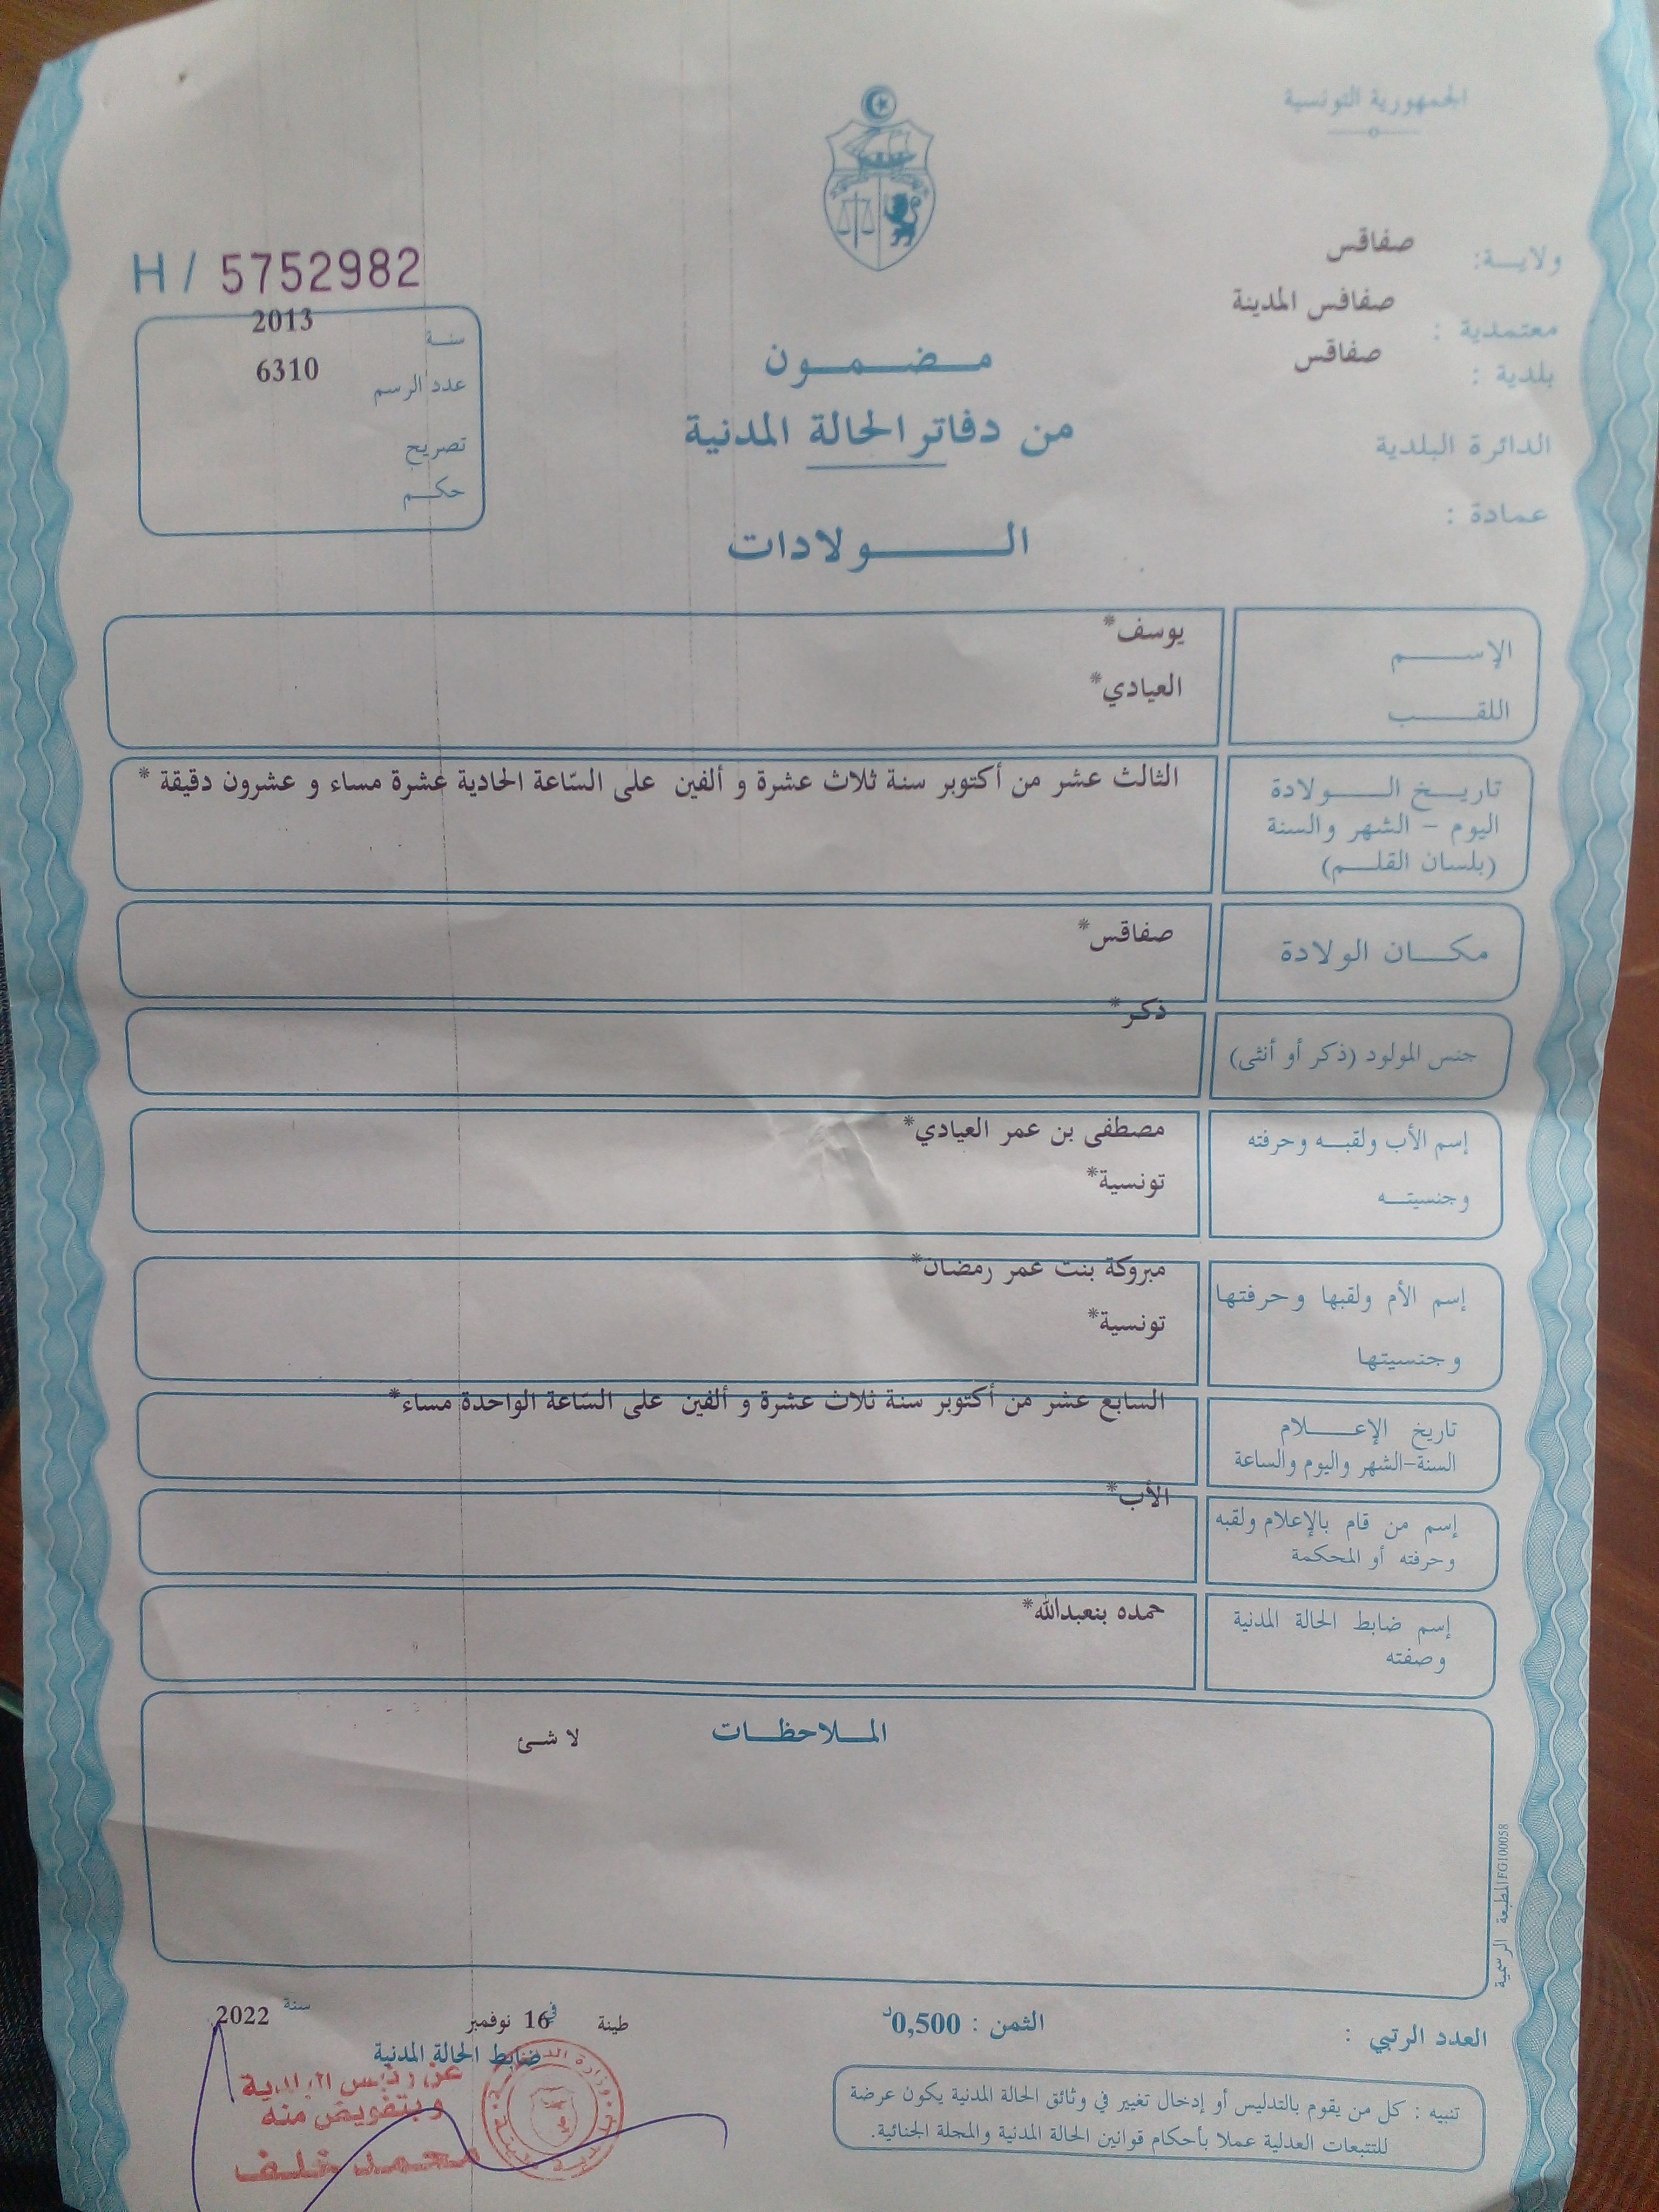 الجمهورية التونسية
ولاية: صفاقس
معتمدية : صفاقس المدينة
بلدية : صفاقس
الدائرة البلدية
عمادة :
H / 5752982
سنة 2013
عدد الرسم 6310
تصريح
حكم
مضمون
من دفاتر الحالة المدنية
الولادات
الإسم يوسف*
اللقب العيادي*
تاريخ الولادة الثالث عشر من أكتوبر سنة ثلاث عشرة و ألفين على السّاعة الحادية عشرة مساء و عشرون دقيقة *
اليوم - الشهر والسنة
(بلسان القلم)
مكان الولادة صفاقس*
جنس المولود (ذكر أو أنثى) ذكر*
إسم الأب ولقبه وحرفته مصطفى بن عمر العيادي*
وجنسيته تونسية*
إسم الأم ولقبها وحرفتها مبروكة بنت عمر رمضان*
وجنسيتها تونسية*
تاريخ الإعلام السابع عشر من أكتوبر سنة ثلاث عشرة و ألفين على السّاعة الواحدة مساء*
السنة-الشهر واليوم والساعة
إسم من قام بالإعلام ولقبه الأب*
وحرفته أو المحكمة
إسم ضابط الحالة المدنية حمده بنعبدالله*
وصفته
الملاحظات لا شئ
المطبعة الرسمية FO100058
العدد الرتبي :
الثمن : 0,500د
طينة في 16 نوفمبر سنة 2022
ضابط الحالة المدنية
عن رئيس البلدية
وبتفويض منه
محمد خلف
تنبيه : كل من يقوم بالتدليس أو إدخال تغيير في وثائق الحالة المدنية يكون عرضة
للتتبعات العدلية عملا بأحكام قوانين الحالة المدنية والمجلة الجنائية.